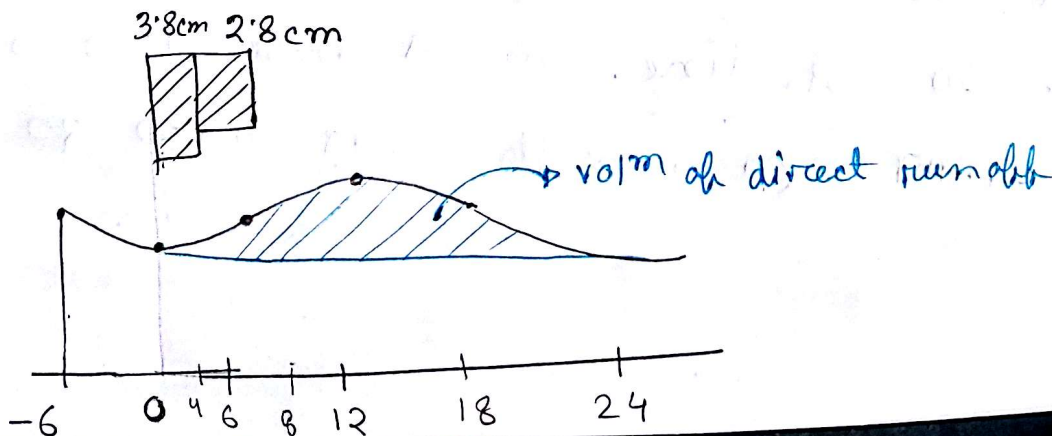 3.8cm 2.8cm
volm of direct runoff
-6 0 4 6 8 12 18 24